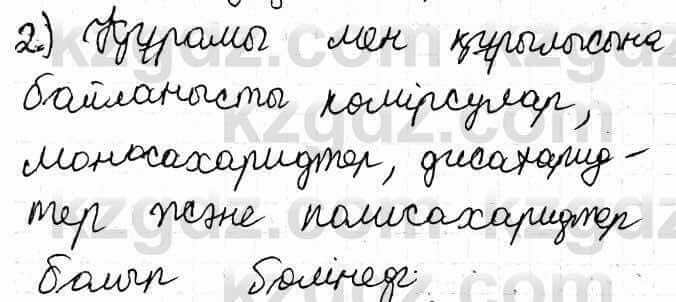 2.) Құрамы мен құрылысына
байланысты көмірсулар,
моносахаридтер, дисахарид-
тер және полисахаридтер
болып бөлінеді.